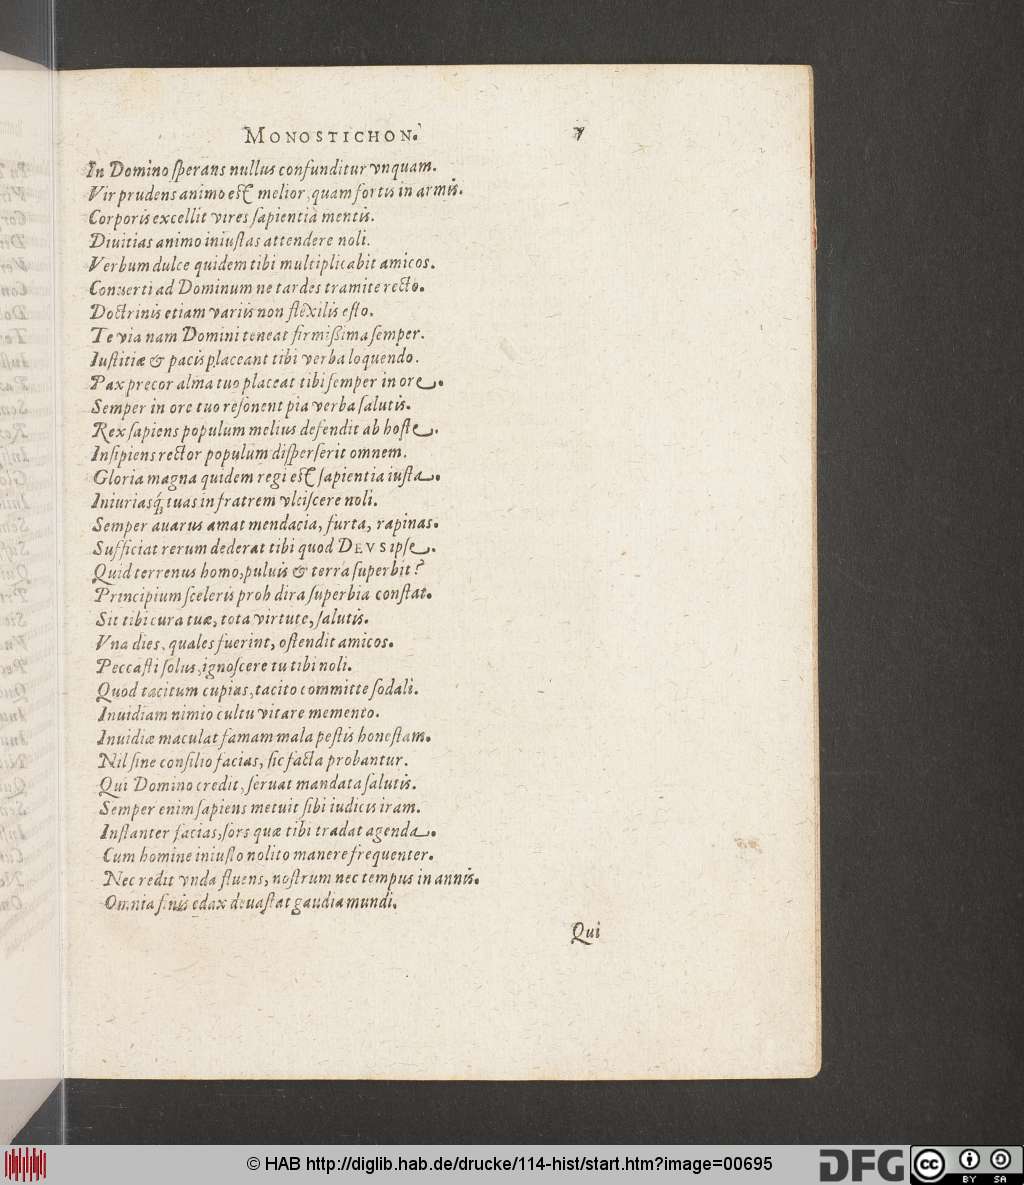 MONOSTICHON. 7
In Domino ſperans nullus confunditur vnquam.
Vir prudens animo eſt melior, quam fortis in armis.
Corporis excellit vires ſapientia mentis.
Diuitias animo iniuſtas attendere noli.
Verbum dulce quidem tibi multiplicabit amicos.
Conuerti ad Dominum ne tardes tramite recto.
Doctrinis etiam variis non flexilis eſto.
Te via nam Domini teneat firmißima ſemper.
Iuſtitiæ & pacis placeant tibi verba loquendo.
Pax precor alma tuo placeat tibi ſemper in ore.
Semper in ore tuo reſonent pia verba ſalutis.
Rex ſapiens populum melius defendit ab hoſte.
Inſipiens rector populum diſperſerit omnem.
Gloria magna quidem regi eſt ſapientia iuſta.
Iniuriasq́; tuas in fratrem vlciſcere noli.
Semper auarus amat mendacia, furta, rapinas.
Sufficiat rerum dederat tibi quod DEVS ipſe.
Quid terrenus homo, puluis & terra ſuperbit?
Principium ſceleris proh dira ſuperbia conſtat.
Sit tibi cura tuæ, tota virtute, ſalutis.
Vna dies, quales fuerint, oſtendit amicos.
Peccaſti ſolus, ignoſcere tu tibi noli.
Quod tacitum cupias, tacito committe ſodali.
Inuidiam nimio cultu vitare memento.
Inuidiæ maculat famam mala peſtis honeſtam.
Nil ſine conſilio facias, ſic facta probantur.
Qui Domino credit, ſeruat mandata ſalutis.
Semper enim ſapiens metuit ſibi iudicis iram.
Inſtanter facias, ſors quæ tibi tradat agenda.
Cum homine iniuſto nolito manere frequenter.
Nec redit vnda fluens, noſtrum nec tempus in annis.
Omnia finis edax deuaſtat gaudia mundi.
Qui
© HAB http://diglib.hab.de/drucke/114-hist/start.htm?image=00695
DFG
cc BY SA